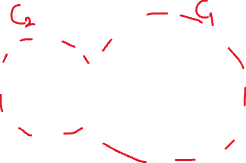 C₂
C₁